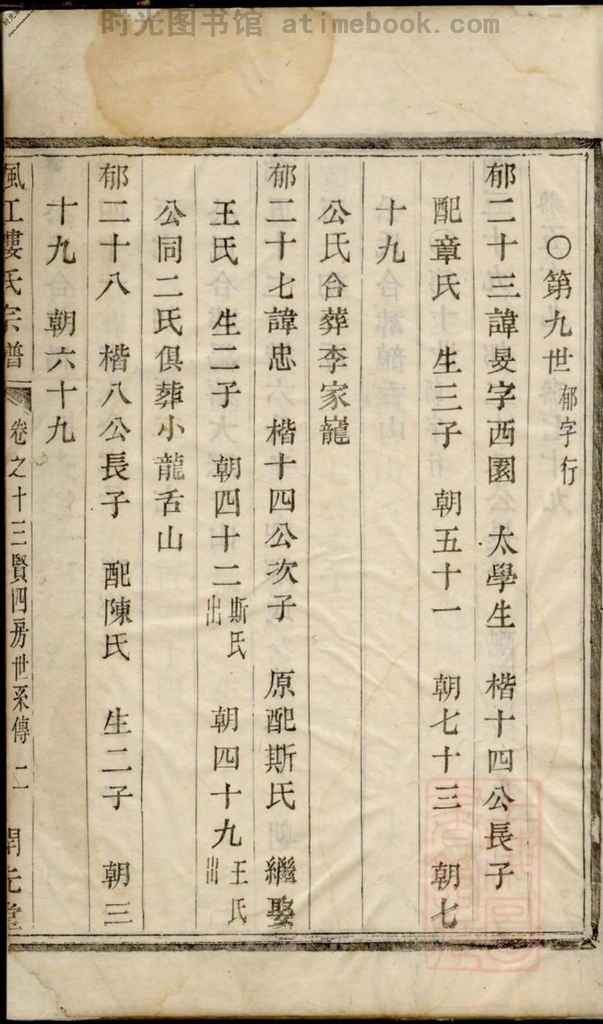 时光图书馆 atimebook.com
○第九世 郁字行
郁二十三諱旻字西園 太學生 楷十四公長子
配章氏 生三子 朝五十一 朝七十三 朝七
十九
公氏合葬李家巃
郁二十七諱忠 楷十四公次子 原配斯氏 繼娶
王氏 生二子 朝四十二 斯氏出 朝四十九 王氏出
公同二氏俱葬小龍舌山
郁二十八 楷八公長子 配陳氏 生二子 朝三
十九 朝六十九
樓氏宗譜 卷之十三賢四房世系傳 二